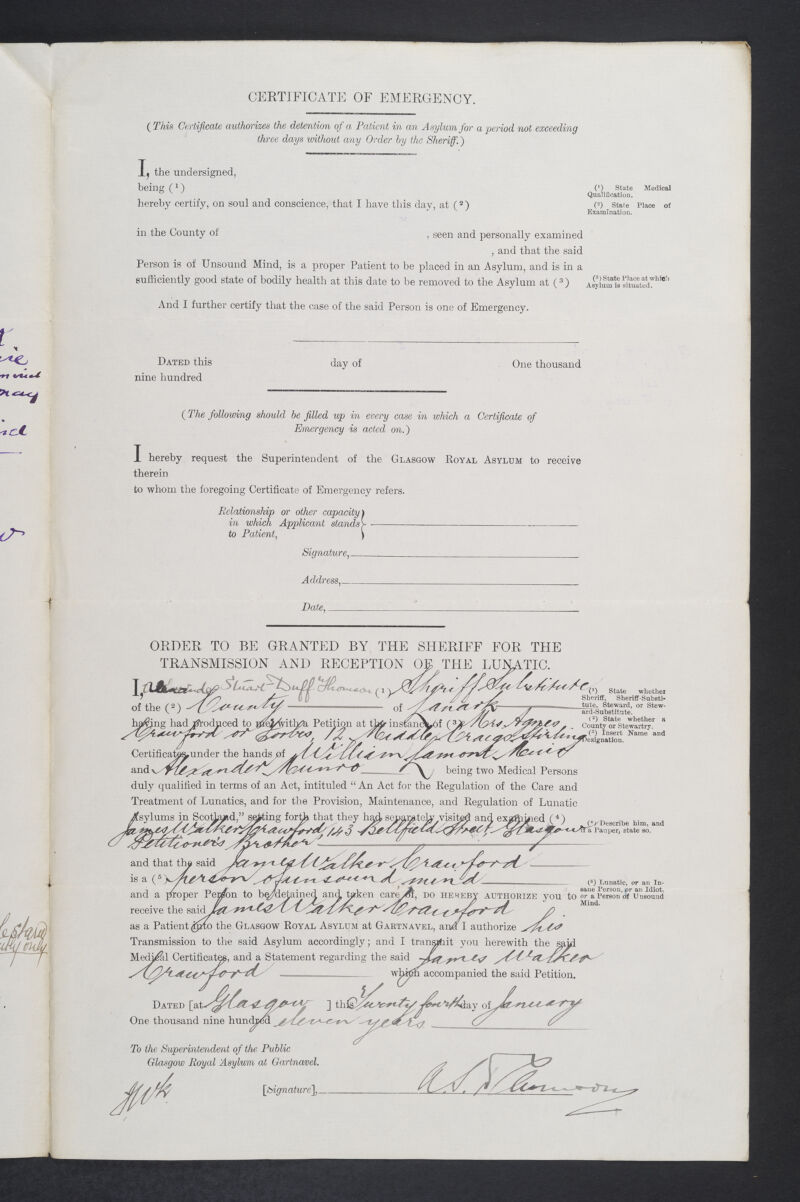 CERTIFICATE OF EMERGENCY.
(This Certificate authorizes the detention of a Patient in an Asylum for a period not exceeding
three days without any Order by the Sheriff.)
I, the undersigned,
being (1)
(1) State Medical
Qualification.
hereby certify, on soul and conscience, that I have this day, at (2)
(2) State Place of
Examination.
in the County of , seen and personally examined
, and that the said
Person is of Unsound Mind, is a proper Patient to be placed in an Asylum, and is in a
sufficiently good state of bodily health at this date to be removed to the Asylum at (3)
(3) State Place at which
Asylum is situated.
And I further certify that the case of the said Person is one of Emergency.
DATED this day of One thousand
nine hundred
(The following should be filled up in every case in which a Certificate of
Emergency is acted on.)
I hereby request the Superintendent of the GLASGOW ROYAL ASYLUM to receive
therein
to whom the foregoing Certificate of Emergency refers.
Relationship or other capacity
in which Applicant stands
to Patient,
Signature,
Address,
Date,
ORDER TO BE GRANTED BY THE SHERIFF FOR THE
TRANSMISSION AND RECEPTION OF THE LUNATIC.
I, Alexander Stuart Duff Thomson (1) Sheriff Substitute
(1) State whether
Sheriff, Sheriff-Substi-
tute, Steward, or Stew-
ard-Substitute.
of the (2) County of Lanark
(2) State whether a
County or Stewartry.
having had produced to me with a Petition at the instance of (3) Mrs. Agnes
(3) Insert Name and
Designation.
Crawford or Forbes, 12 Middle Craigs, Stirling
Certificates under the hands of William Lamont Muir
and Alexander Munro being two Medical Persons
duly qualified in terms of an Act, intituled "An Act for the Regulation of the Care and
Treatment of Lunatics, and for the Provision, Maintenance, and Regulation of Lunatic
Asylums in Scotland," setting forth that they had separately visited and examined (4)
(4) Describe him, and
if a Pauper, state so.
James Walker Crawford, 143 Bellfield Street, Glasgow
Petitioner's Brother
and that the said James Walker Crawford
is a (5) person of unsound mind
(5) Lunatic, or an In-
sane Person, or an Idiot,
or a Person of Unsound
Mind.
and a proper Person to be detained and taken care of, DO HEREBY AUTHORIZE you to
receive the said James Walker Crawford
as a Patient into the GLASGOW ROYAL ASYLUM at GARTNAVEL, and I authorize his
Transmission to the said Asylum accordingly; and I transmit you herewith the said
Medical Certificates, and a Statement regarding the said James Walker
Crawford which accompanied the said Petition.
DATED [at Glasgow ] this Twenty fourth day of January
One thousand nine hundred eleven years
To the Superintendent of the Public
Glasgow Royal Asylum at Gartnavel.
[Signature], A. S. D. Thomson